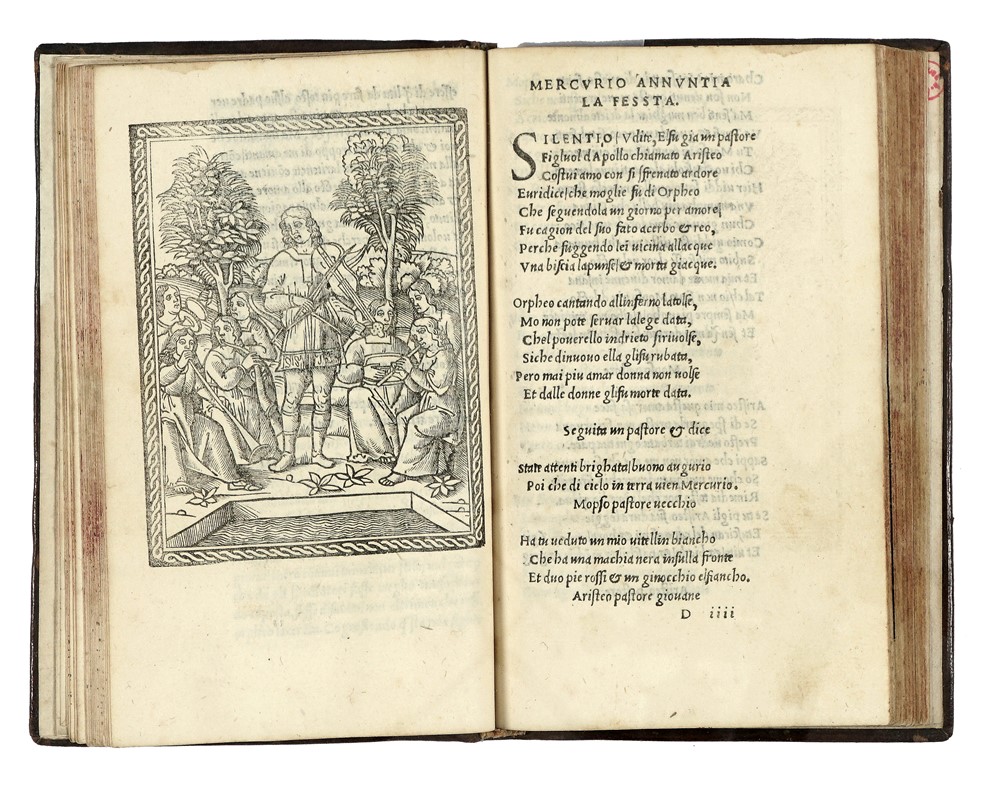 MERCVRIO ANNVNTIA
LA FESSTA.
SILENTIO/Vdite, E fu gia un pastore
Figluol d Apollo chiamato Aristeo
Costui amo con si sfrenato ardore
Euridice/che moglie fu di Orpheo
Che seguendola un giorno per amore/
Fu cagion del suo fato acerbo & reo,
Perche fuggendo lei uicina allacque
Vna biscia lapunse/& morta giacque.
Orpheo cantando allinferno latolse,
Mo non pote seruar lalege data,
Chel pouerello indrieto siriuolse,
Siche dinuouo ella glifu rubata,
Pero mai piu amar donna non uolse
Et dalle donne glifu morte data.
Seguita un pastore & dice
State attenti brighata/buono augurio
Poi che di cielo in terra uien Mercurio.
Mopso pastore uecchio
Ha tu ueduto un mio uitellin biancho
Che ha una machia nera insulla fronte
Et duo pie rossi & un ginocchio elfiancho.
Aristeo pastore giouane
D iiii